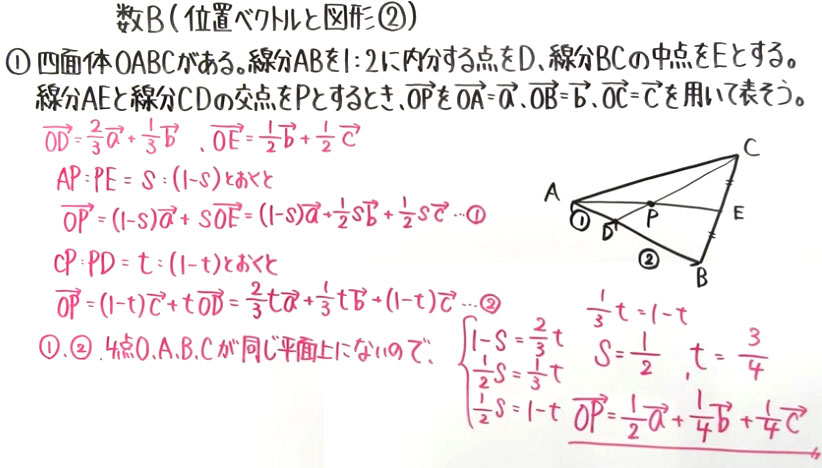 数B(位置ベクトルと図形②)
① 四面体OABCがある。線分ABを1:2に内分する点をD、線分BCの中点をEとする。
線分AEと線分CDの交点をPとするとき、$\overrightarrow{OP}$を$\overrightarrow{OA}=\vec{a}$、$\overrightarrow{OB}=\vec{b}$、$\overrightarrow{OC}=\vec{c}$を用いて表そう。
$\overrightarrow{OD}=\frac{2}{3}\vec{a}+\frac{1}{3}\vec{b}$、$\overrightarrow{OE}=\frac{1}{2}\vec{b}+\frac{1}{2}\vec{c}$
AP:PE=s:(1-s)とおくと
$\overrightarrow{OP}=(1-s)\vec{a}+s\overrightarrow{OE}=(1-s)\vec{a}+\frac{1}{2}s\vec{b}+\frac{1}{2}s\vec{c}$…①
CP:PD=t:(1-t)とおくと
$\overrightarrow{OP}=(1-t)\vec{c}+t\overrightarrow{OD}=\frac{2}{3}t\vec{a}+\frac{1}{3}t\vec{b}+(1-t)\vec{c}$…②
①、②、4点O、A、B、Cが同じ平面上にないので、
$1-s=\frac{2}{3}t$
$\frac{1}{2}s=\frac{1}{3}t$
$\frac{1}{2}s=1-t$
$\frac{1}{3}t=1-t$
$s=\frac{1}{2}$、$t=\frac{3}{4}$
$\overrightarrow{OP}=\frac{1}{2}\vec{a}+\frac{1}{4}\vec{b}+\frac{1}{4}\vec{c}$
C
A
①
D
P
E
②
B